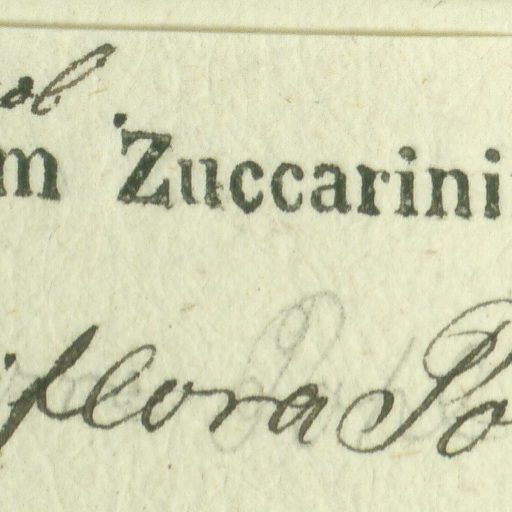 m Zuccarini
flora Po